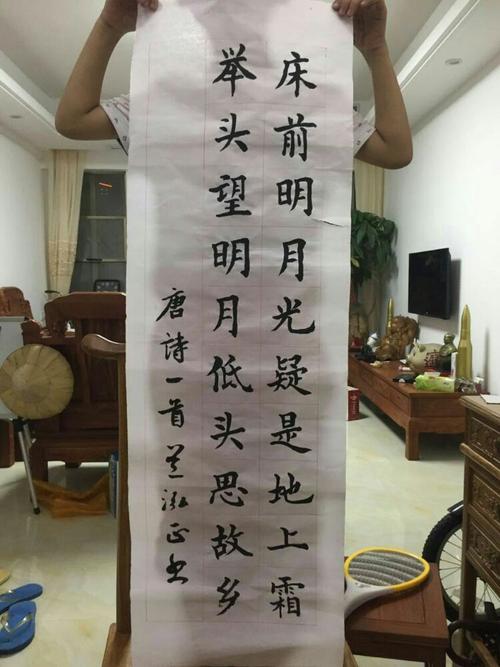 床前明月光疑是地上霜
举头望明月低头思故乡
唐诗一首兰泓正书